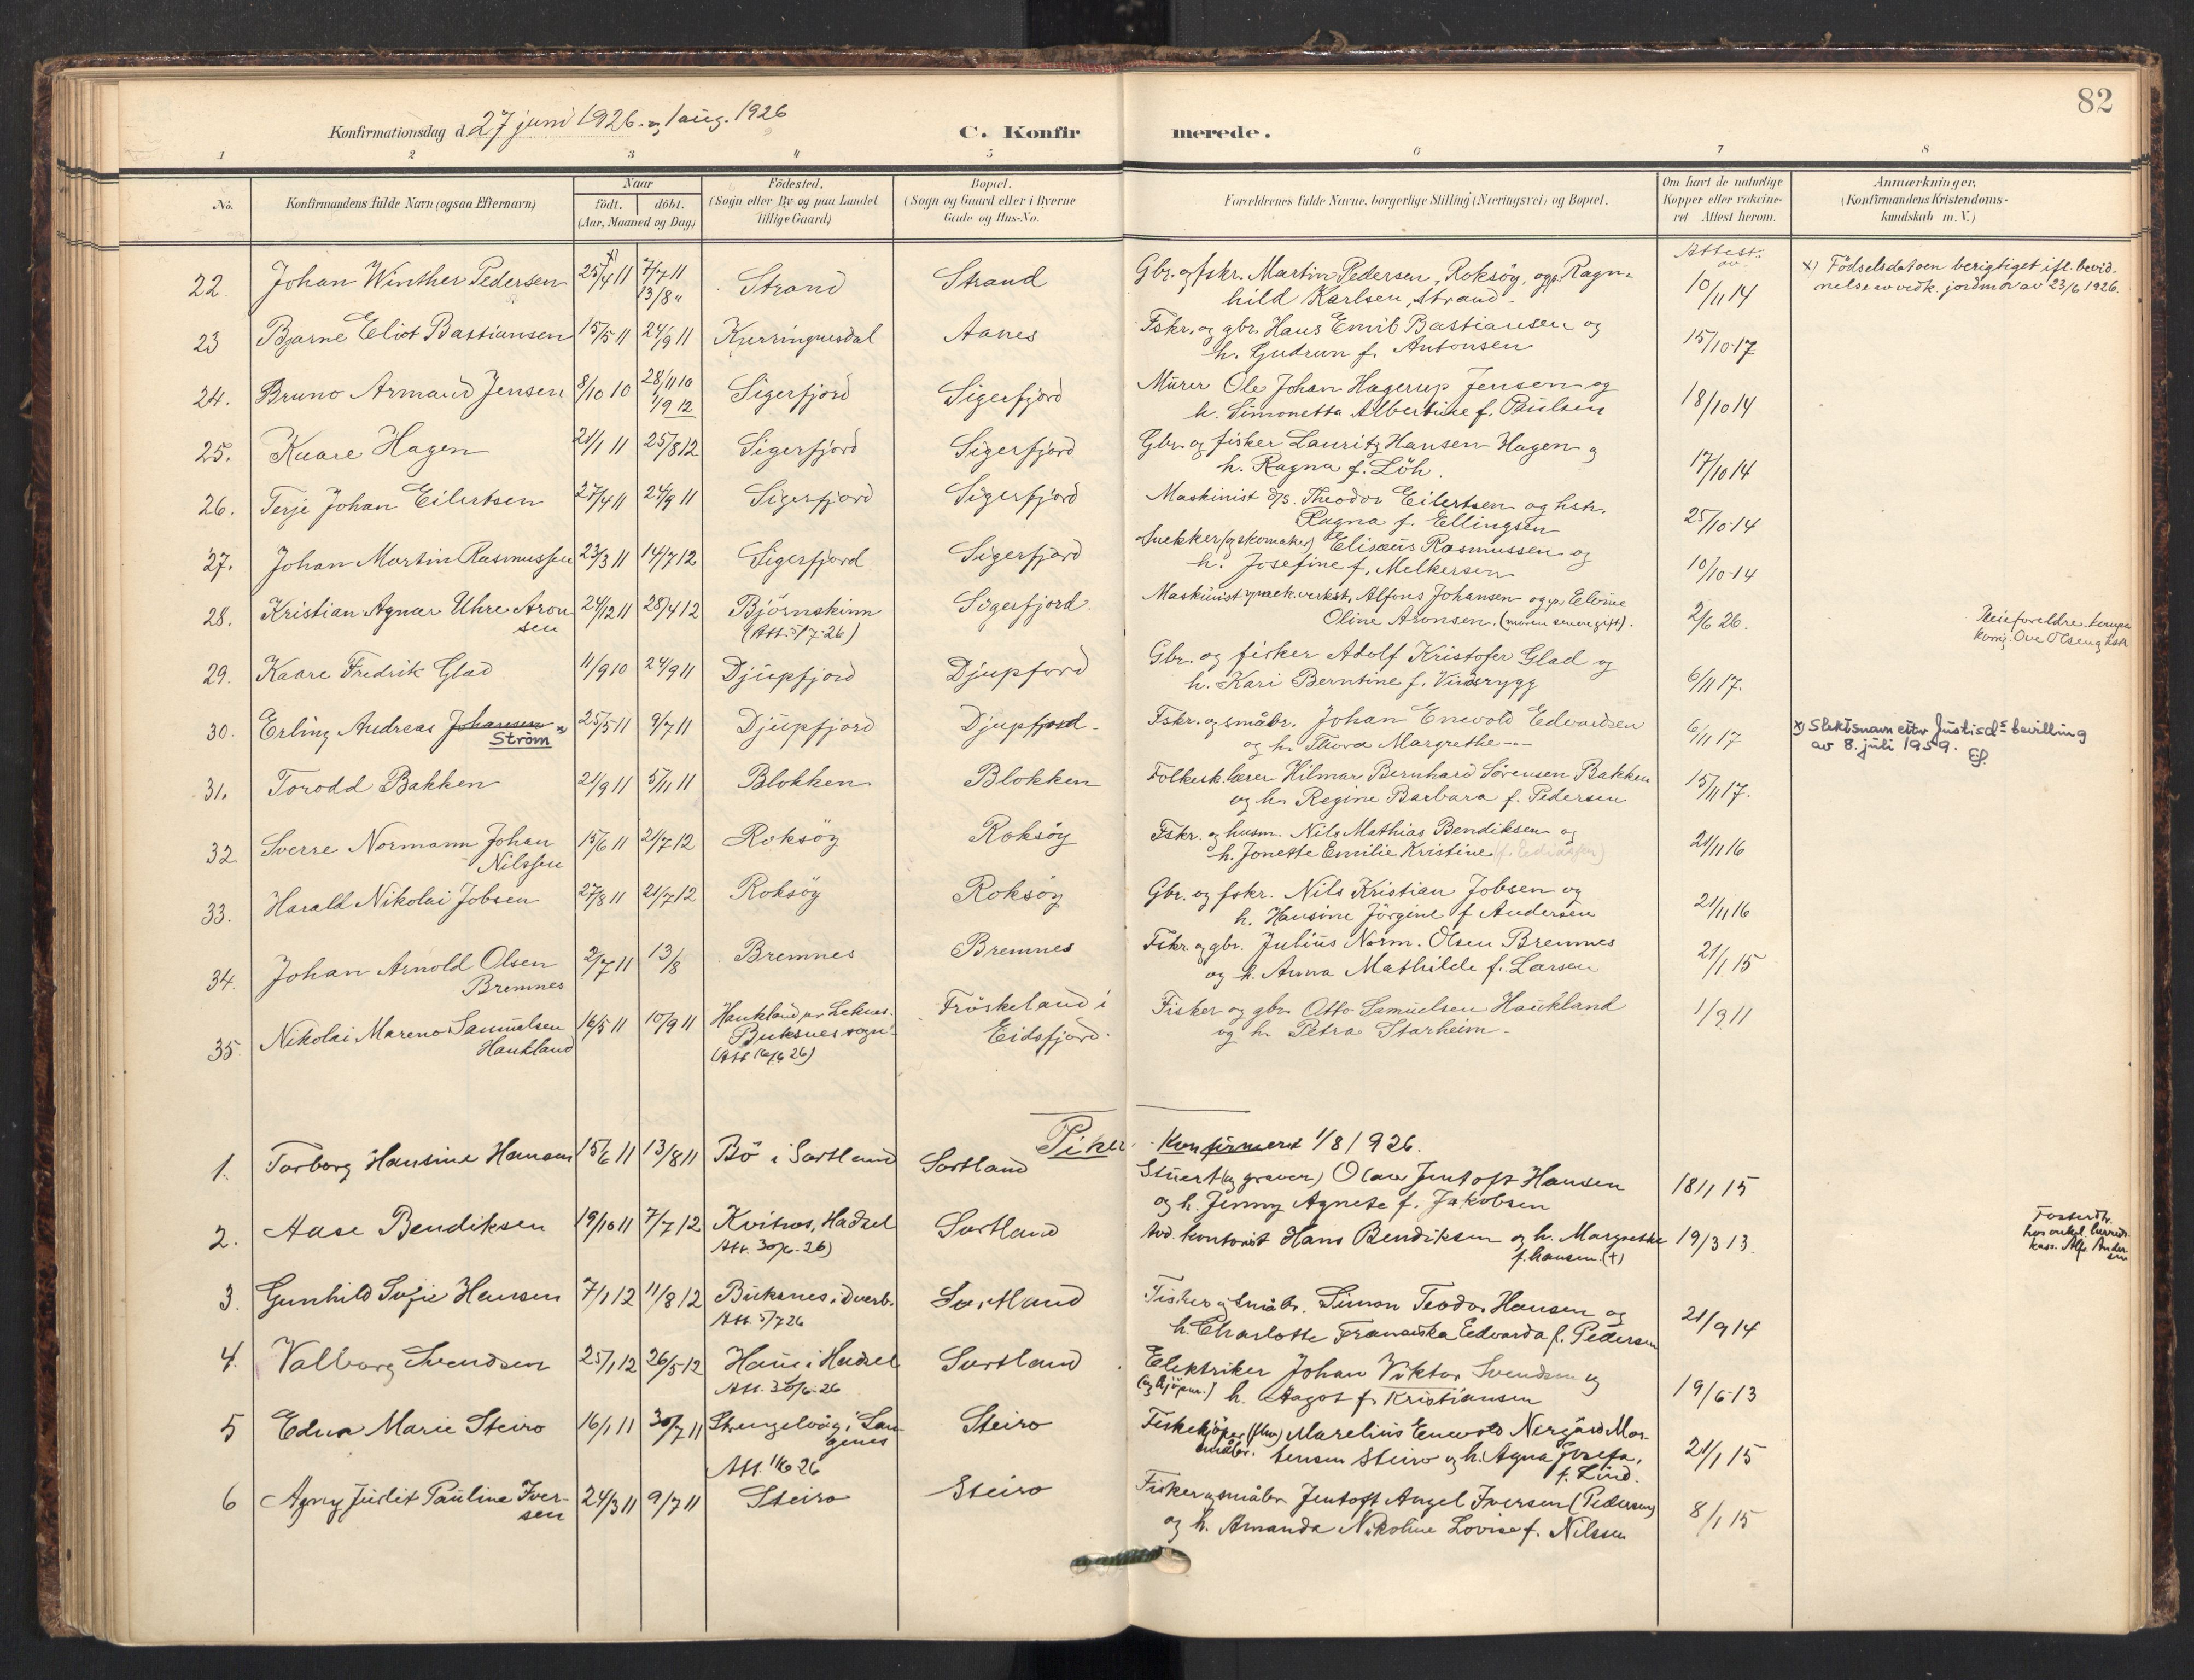 82
Konfirmationsdag d. 27 juni 1926. og 1 aug. 1926
C. Konfirmerede.
1 2 3 4 5 6 7 8
No.
Konfirmandens fulde Navn (ogsaa Efternavn)
Naar
födt. döbt.
(Aar, Maaned og Dag)
Födested.
(Sogn eller By og paa Landet
tillige Gaard)
Bopæl.
(Sogn og Gaard eller i Byerne
Gade og Hus-No.
Forældrenes fulde Navne, borgerlige Stilling (Næringsvei) og Bopæl.
Om havt de naturlige
Kopper eller vakcine-
ret Attest herom.
Anmærkninger.
(Konfirmandens Kristendoms-
kundskab m. V.)
Attest.
av
22. Johan Winther Pedersen 25/4 11 x) 7/7 11 13/8 " Strand Strand Gbr. og fskr. Martin Pedersen, Roksöy, og p. Ragn-
hild Karlsen, Strand 10/11 14
x) Födselsdatoen berigtiget ifl. bevid-
nelse av vedk. jordmor av 23/6 1926.
23 Bjarne Eliot Bastiansen 15/5 11 24/9 11 Kjerringnesdal Aanes Fskr. og gbr. Hans Emil Bastiansen og
h. Gudrun f. Antonsen 15/10-17
24. Bruno Armand Jensen 8/10 10 28/11 10 1/9 12 Sigerfjord Sigerfjord Mürer Ole Johan Hagerup Jensen og
h. Simonetta Albertine f. Paulsen 18/10 14
25. Kaare Hagen 21/1 11 25/8 12 Sigerfjord Sigerfjord Gbr. og fisker Lauritz Hansen Hagen og
h. Ragna f. Löh. 17/10 14
26. Terje Johan Eilertsen 27/4 11 24/9 11 Sigerfjord Sigerfjord Maskinist d/s. Theodor Eilertsen og hstr.
Ragna f. Ellingsen 25/10-14
27. Johan Martin Rasmussen 23/3 11 14/7 12 Sigerfjord Sigerfjord Snekker (og skomaker) Elisæus Rasmussen og
h. Josefine f. Melkersen 10/10-14
28. Kristian Agnar Uhre Aron-
sen 24/12 11 28/4 12 Björnskinn
(Att. 5/7-26) Sigerfjord. Maskinist mek. verkst. Alfons Johansen og p. Elvine
Oline Aronsen. (moren senere gift). 2/6 26.
Pleieforeldre
Ove Olsen og hstr
29. Kaare Fredrik Glad 11/9 10 24/9 11 Djüpfjord Djupfjord Gbr. og fisker Adolf Kristofer Glad og
h. Kari Berntine f. Vindrygg 6/11 17.
30. Erling Andreas Johansen
Ström x) 25/5 11 9/7 11 Djüpfjord Djupfjord Fskr. og småbr. Johan Enevold Edvardsen
og h. Thora Margrethe --- 6/11 17
x) Slektsnavn etter Justisd= bevilling
av 8. juli 1959.
31. Torodd Bakken 21/9 11 5/11 11 Blokken Blokken Folkesk.lærer Hilmar Bernhard Sörensen Bakken
og h. Regine Barbara f. Pedersen 15/11 17.
32 Sverre Normann Johan
Nilssen 15/6 11 21/7 12 Roksöy Roksöy Fskr. og husm. Nils Mathias Bendiksen og
h. Jonette Emilie Kristine 21/11 16
33. Harald Nikolai Jobsen 27/8 11 21/7 12 Roksöy Roksöy Gbr. og fskr. Nils Kristian Jobsen og
h. Hansine Jörgine f Andersen 21/11 16
34. Johan Arnold Olsen
Bremnes 2/7 11 13/8 Bremnes Bremnes Fskr. og gbr. Julius Norm. Olsen Bremnes
og h. Anna Mathilde f. Larsen 21/1 15
35. Nikolai Mareno Samuelsen
Haukland 16/5 11 10/9 11 Haukland pr Leknes.
Buksnes sogn
(Att 16/6 26) Fröskeland i
Eidsfjord. Fisker og gbr Otto Samuelsen Haukland
og h. Petra Starheim 1/9 11
Piker. Konfirmert 1/8 1926.
1. Torborg Hansine Hansen 15/6 11 13/8 11 Bö i Sortland Sortland Stuert (og graver) Olav Jentoft Hansen
og h. Jenny Agnete f. Jakobsen 18/1 15
2. Aase Bendiksen 19/10 11 7/7 12 Kvitnes, Hadsel
Att. 30/6-26) Sortland Avd. kontorist Hans Bendiksen og h. Margrethe
f. Hansen. (†) 19/3 13
Fosterdtr.
hos onkel herreds-
kass. Alf Ander-
sen
3. Gunhild Sofie Hansen 7/1 12 11/8 12 Buksnes i Dverb.
Att. 5/7 26 Sortland Fisker og småbr. Simon Teodor Hansen og
h. Charlotte Franciska Edvarda f. Pedersen 21/9 14
4. Valborg Svendsen 25/1 12 26/5 12 Haug i Hadsel
Att. 30/6-26 Sortland Elektriker Johan Viktor Svendsen og
h. Aagot f. Kristiansen 19/6-13
5 Edna Marie Steiro 16/1 11 30/7 11 Strengelvåg i Lan-
genes
Att. 1/6 26 Steiro Fiskekjöper Marelius Enevold Nergård Mor-
småbr. tensen Steiro og h. Agna Josefa,
f. Lind. 21/1 15
6 Agny Judit Pauline Iver-
sen 24/3 11 9/7 11 Steiro Steiro Fisker og småbr Jentoft Angel Iversen (Pedersen)
og h. Amanda Nikoline Lovise f. Nilssen 8/1 15